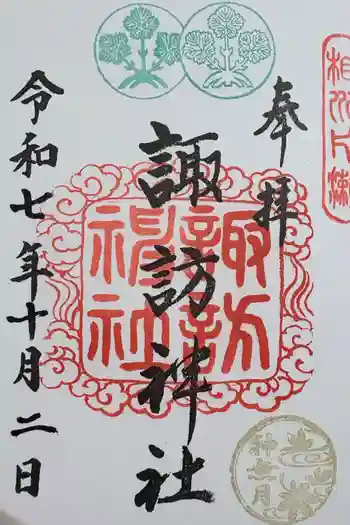 奉拝
諏訪神社
令和七年十月二日
諏訪
神社
神無月